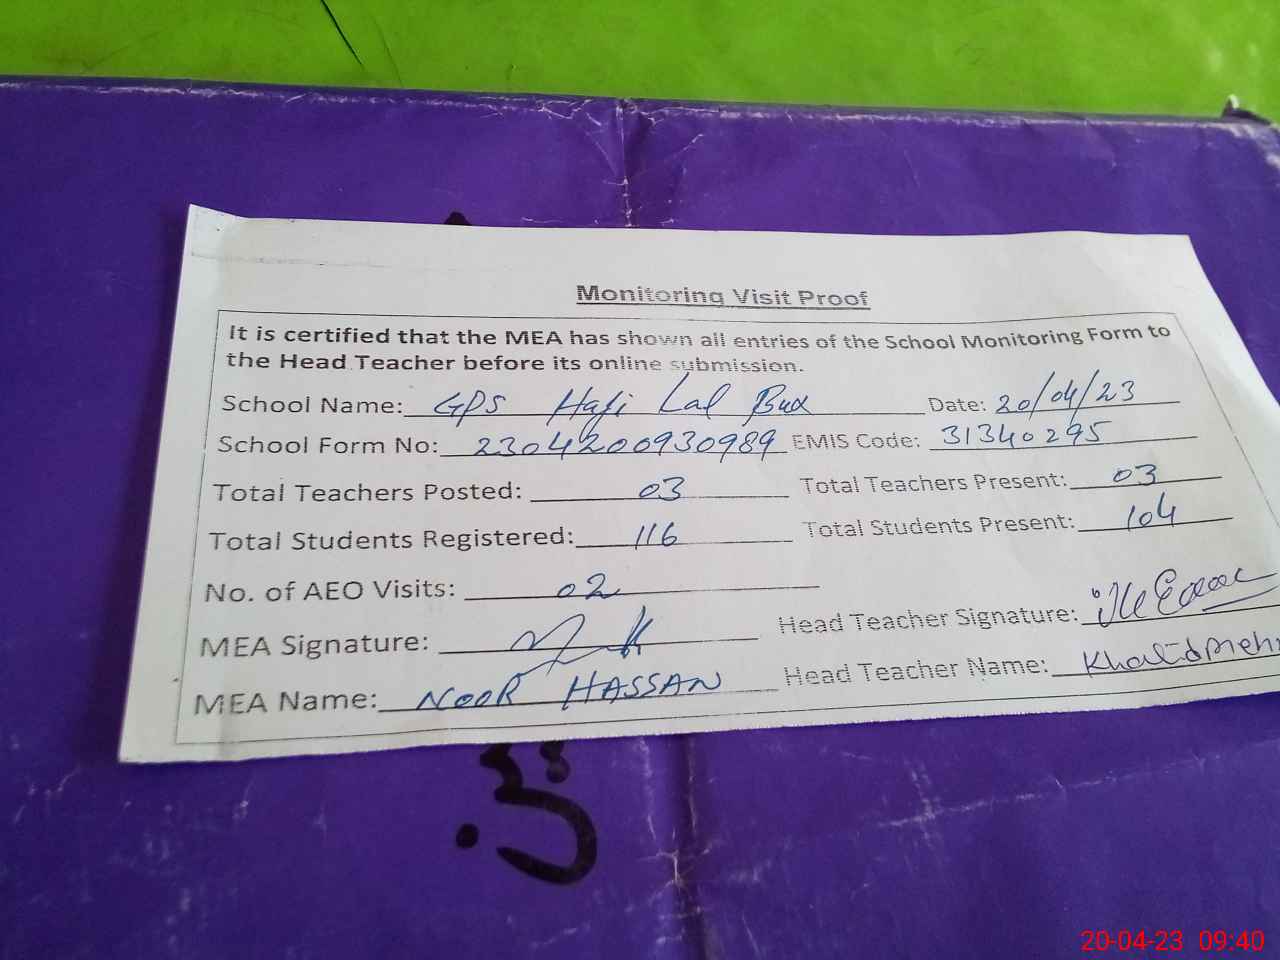 Monitoring Visit Proof
It is certified that the MEA has shown all entries of the School Monitoring Form to
the Head Teacher before its online submission.
School Name: GPS Haji Lal Bux Date: 20/04/23
School Form No: 2304200930989 EMIS Code: 31340295
Total Teachers Posted: 03 Total Teachers Present: 03
Total Students Registered: 116 Total Students Present: 104
No. of AEO Visits: 02
MEA Signature: Head Teacher Signature:
MEA Name: NOOR HASSAN Head Teacher Name: Khalid
20-04-23 09:40